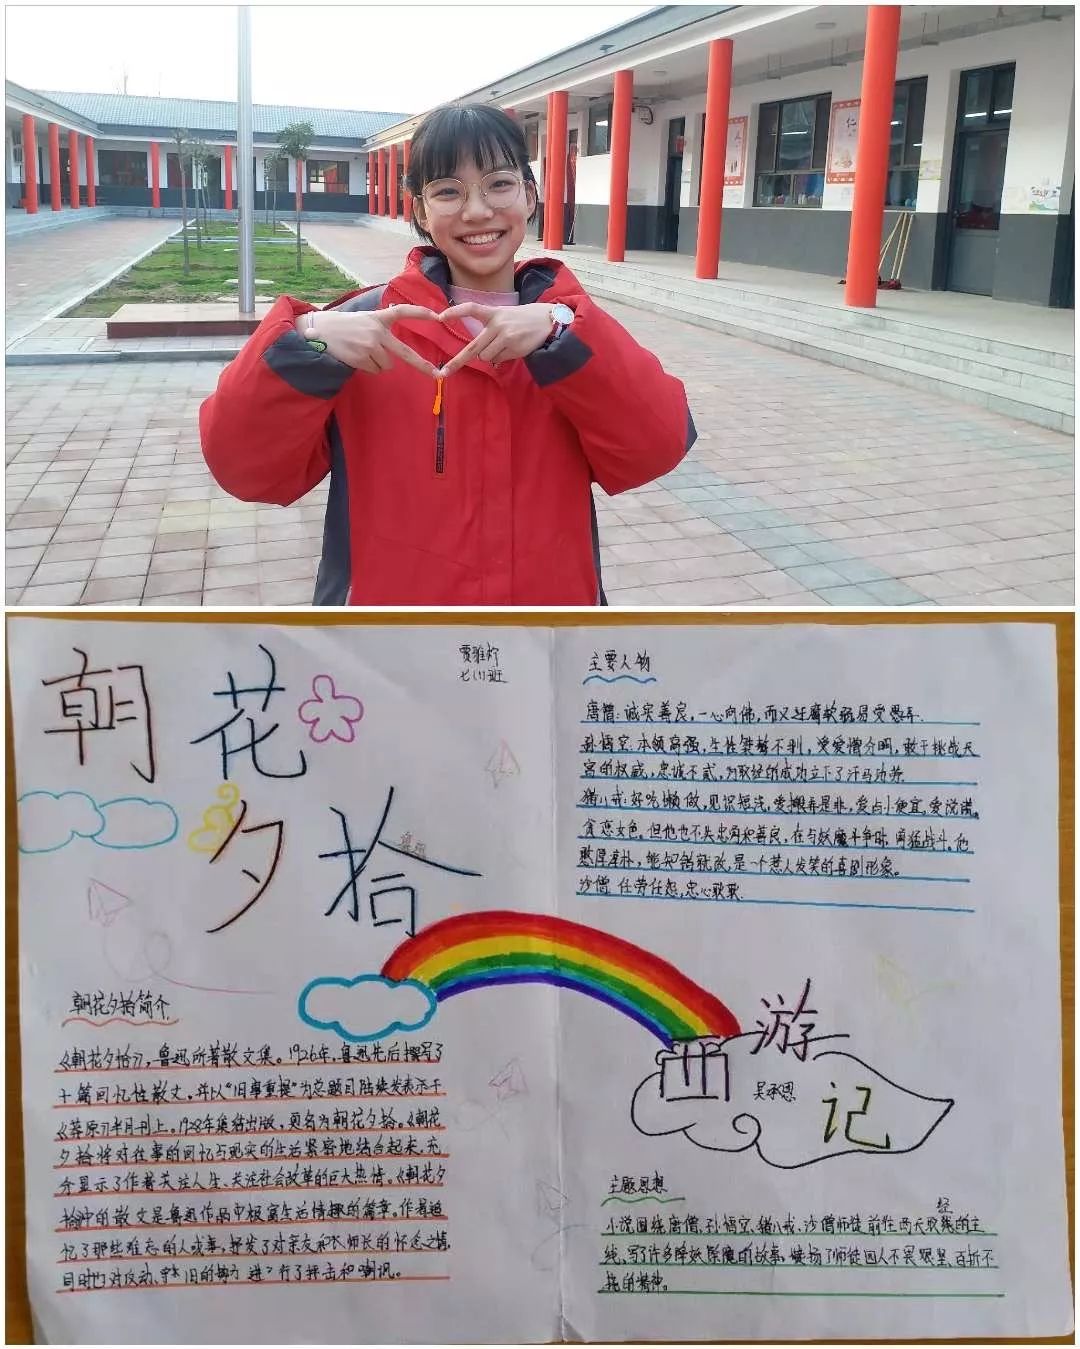 仁
朝花
夕拾
鲁迅
贾雅
七(1)班
朝花夕拾简介
《朝花夕拾》,鲁迅所著散文集。1926年,鲁迅先后撰写了
十篇回忆性散文,并以“旧事重提”为总题目陆续发表示于
《莽原》半月刊上。1928年集结出版,更名为朝花夕拾。《朝花
夕拾将对往事的回忆与现实的生活紧密地结合起来,充
分显示了作者关注人生、关注社会改革的巨大热情。《朝花夕
拾中的散文是鲁迅作品中极富生活情趣的篇章。作者追
忆了那些难忘的人或事,抒发了对亲友和师长的怀念之情,
同时也对反动、守旧的势力进行了抨击和嘲讽。
主要人物
唐僧:诚实善良,一心向佛,而又迂腐软弱易受愚弄.
孙悟空:本领高强,生性桀骜不驯,爱憎分明,敢于挑战天
宫的权威,忠诚不贰,为取经的成功立下了汗马功劳.
猪八戒:好吃懒做,见识短浅,爱搬弄是非,爱占小便宜,爱说谎,
贪恋女色。但他也不失忠勇和善良,在与妖魔斗争时,勇猛战斗。他
憨厚淳朴,能知错就改,是一个惹人发笑的喜剧形象。
沙僧 任劳任怨,忠心耿耿.
西游记
吴承恩
主题思想
小说围绕唐僧、孙悟空、猪八戒、沙僧师徒前往西天取经的主
线,写了许多降妖除魔的故事,赞扬了师徒四人不畏艰坚、百折不
挠的精神。